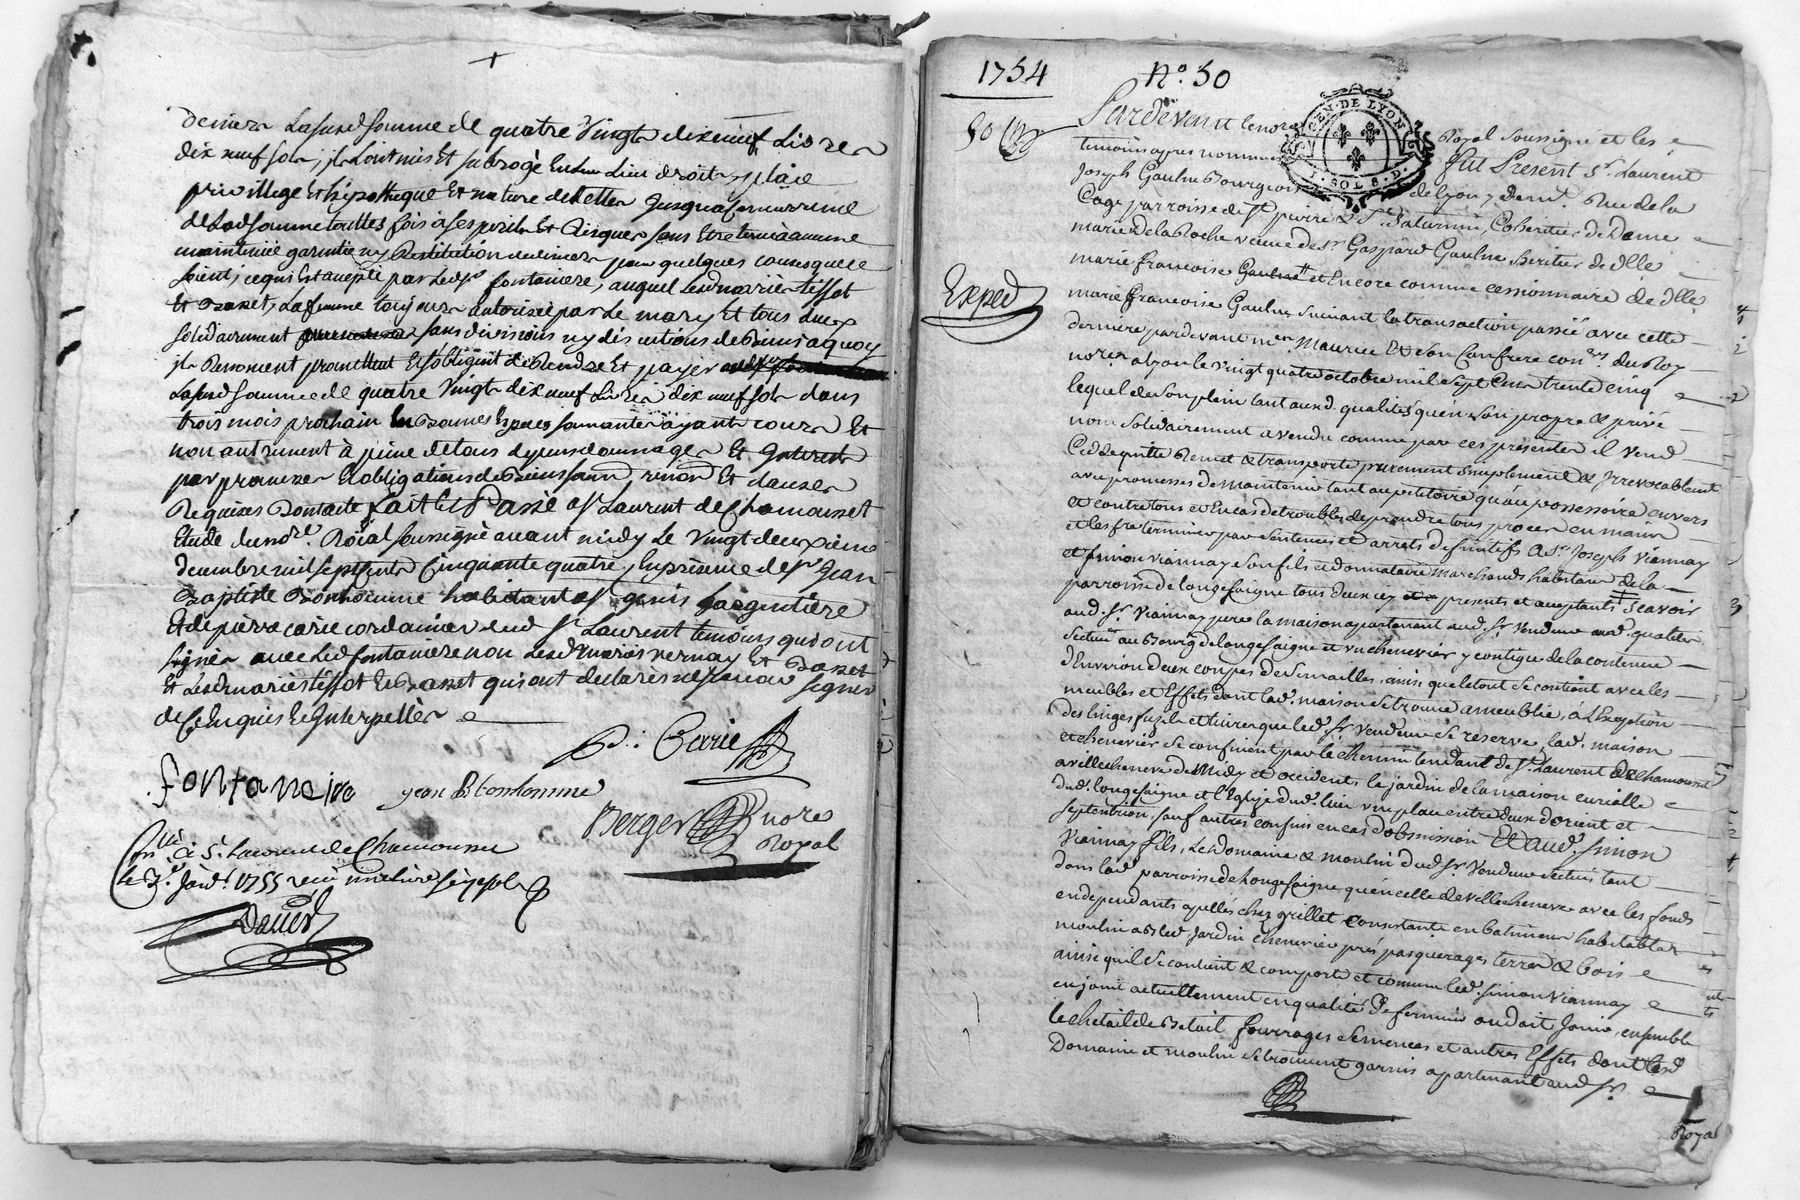 deniers Lasusd somme de quatre Vingt dix neuf Livres
dix neuf sols, jls Lont mis Et subrogé En Leur Lieu droit, place
privillege Et hipotheque Et nature de dettes jusqua
de Lad somme touttes fois à ses perils Et Risques sans Etre tenus à aucune
maintenüe garantie ny Restitution de deniers pour quelques causes que ce
soient, ce qui Est accepté par Led sr fontaniere, auquel Lesd mariés tissot
Et Basset, La femme toujours autorisée par Le mary Et tous deux
solidairement sans divisions ny discutions de Biens a quoy
jls Renoncent promettent Et sobligent de Rendre Et payer
Lasusd somme de quatre Vingt dix neuf Livres dix neuf sols dans
trois mois prochain En Bonnes Especes sonnantes ayants cours Et
non autrement à peine de tous depens dommages Et Interests
par promesses Et obligations de Biens soum renon Et clauses
Requises Dont acte Fait Et Passé a St Laurent de Chamousset
Etude du no.re Roïal soussigné avant midy Le Vingt deuxieme
decembre mil sept cents Cinquante quatre, En presence de sr jean
Baptiste Bonhomme habitant a St genis Largentiere
Et de pierre carie cordonnier dud St Laurent temoins qui ont
signés avec Led fontaniere non Lesd mariés vernay Et Basset
Et Lesd mariés tissot Et Basset qui ont declarés ne sçavoir signer
de Ce Enquis Et Interpellés
P. Carie
fontaneire jean B. bonhomme
Berger nore
Royal
Conllé à St. Laurent de Chamousset
le 3e. janvr 1755 reçu
1754 N°. 50
50
GEN. DE LYON
I. SOL 8. D.
Exped
Pardevant le nore Royal soussigné et les
temoins apres nommés fut Present Sr. Laurent
Joseph Gaulne Bourgeois de Lyon y demt. Rue de la
Cage parroisse de St pierre & St. Saturnin, Coheritier de Dame
marie de la Roche veuve de Sr Gaspard Gaulne heritier de dlle
marie francoise Gaulne et Encore comme cessionnaire de dlle
marie francoise Gaulne suivant la transaction passée avec cette
derniere pardevant mes. Maurice Et son Confrere conrs du Roy
nores a Lyon le vingt quatre octobre mil sept Cens trente cinq
lequel de son plein tant auxd. qualités quen son propre & privé
nom solidairement a vendu comme par ces presentes il vend
Cede quitte Remet & transporte purement simplement & Irrevocablemt
avec promesses de maintenir tant au petitoire quau possessoire envers
et contre tous et En cas de troubles de prendre tous proces en main
et les fre terminer par sentences et arrets definitifs a Sr Joseph Viannay
et Simon viannay son fils et donnataire marchands habitans de la
parroisse de longessaigne tous deux icy presents et acceptants Scavoir
aud. Sr. Viannay pere la maison apartenant aud. Sr. Vendeur aud. qualités
scituée au Bourg de longessaigne et un chenevier y contigu de la contenue
d'Environ deux coupes de semailles, ainsi que le tout se contient avec les
meubles et Effets dont lad. maison se trouve ameublée, à l'Exception
des linges fusils et livres que led. sr vendeur se reserve, lad. maison
et chenevier se confinent par le chemin tendant de St. Laurent de chamousset
a villecheneve de Midy et occident, le jardin de la maison curialle
dud. longessaigne et l'Eglise dud. lieu une place entre deux d'orient et
septentrion sauf autres confins en cas d'obmission Et aud. Simon
Viannay fils, le domaine & moulin dud Sr. Vendeur scitués tant
dans lad parroisse de Longessaigne qu'en celle de villecheneve avec les fonds
en dependants apellés chez grillet consistants en batimens habitables
moulin a Bled Jardin chenevier prés pasquerages terres & bois
ainsi quil se contient & comporte et comme led. Simon Viannay
en jouit actuellement en qualité de fermier ou doit jouir, ensemble
le chetail de Betail fourrages semences et autres Effets dont lesd
Domaine et moulin se trouvent garnis apartenant aud Sr.
Royal